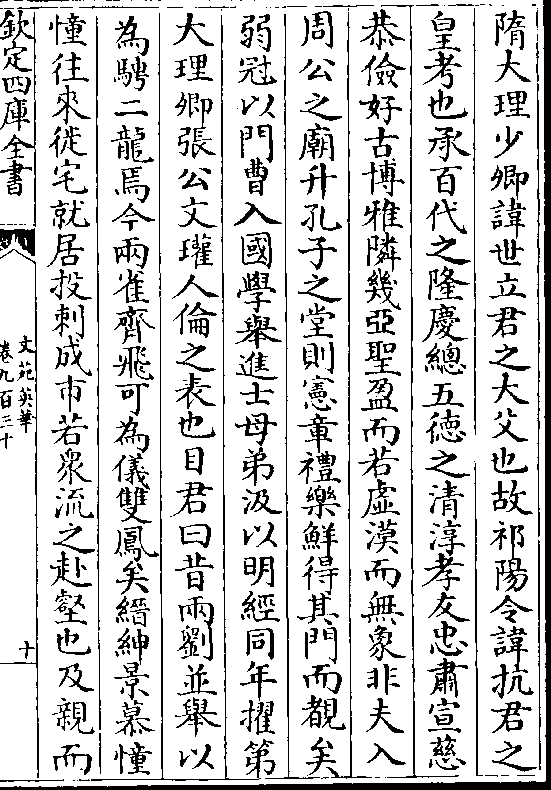 隋大理少卿諱世立君之大父也故祁陽令諱抗君之
皇考也承百代之隆慶總五德之清淳孝友忠肅宣慈
恭儉好古博雅隣幾亞聖盈而若虛漠而無象非夫入
周公之廟升孔子之堂則憲章禮樂鮮得其門而覩矣
弱冠以門曹入國學舉進士母弟汲以明經同年擢第
大理卿張公文瓘人倫之表也目君曰昔兩劉並舉以
為騁二龍焉今兩雀齊飛可為儀雙鳳矣縉紳景慕憧
憧往來徙宅就居投刺成市若衆流之赴壑也及親而
欽定四庫全書
文苑英華
卷九百三十
十